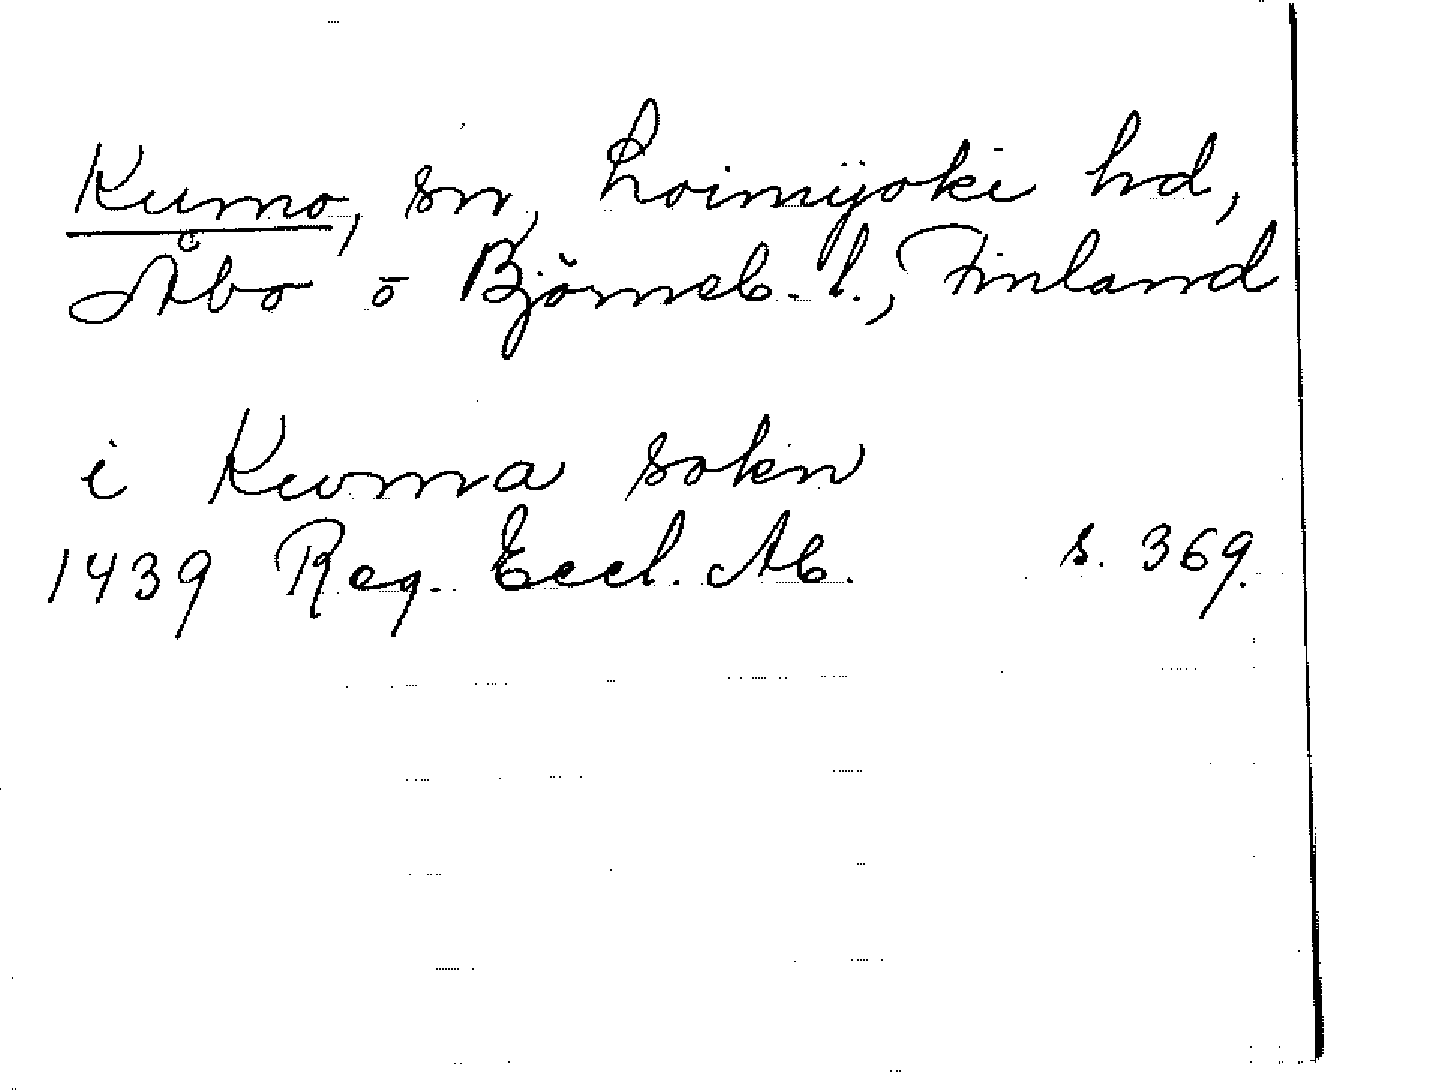 Kumo, sn, Loimijoki hd,
Åbo o Björneb. l., Finland
i Kuma sokn
1439 Reg. Eccl. Ab. s. 369.